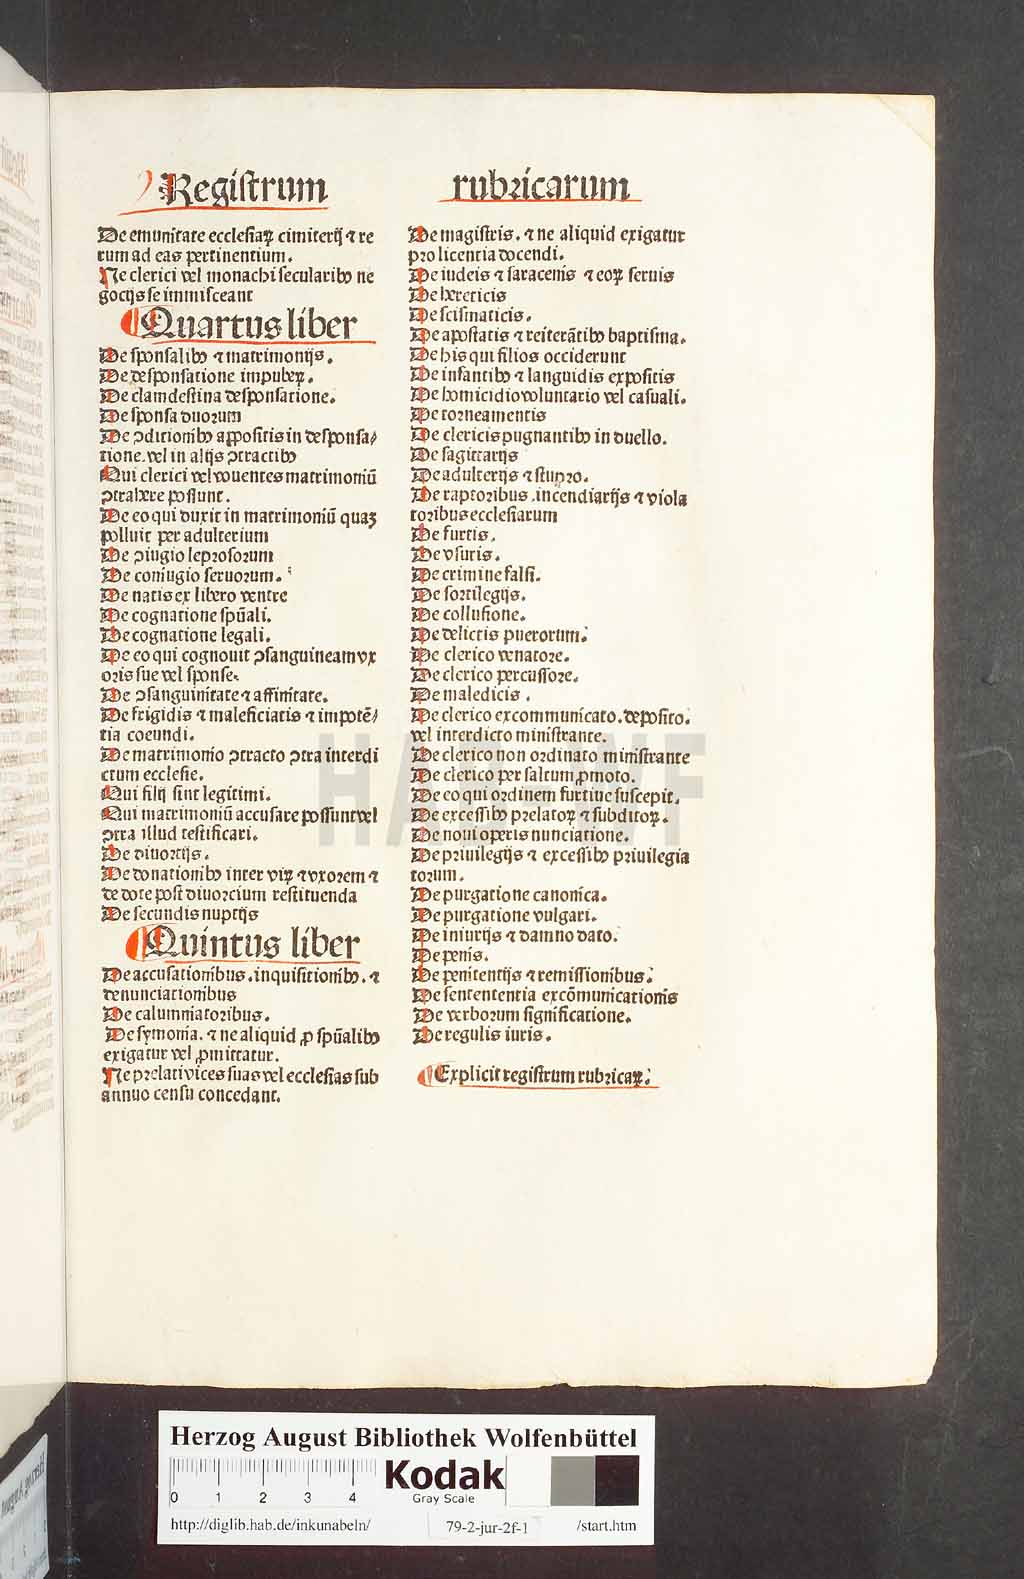 Registrum rubricarum
De emunitate ecclesiaꝝ cimiterij ⁊ re
rum ad eas pertinentium.
Ne clerici vel monachi secularibꝰ ne
gocijs se immisceant
Quartus liber
De sponsalibꝰ ⁊ matrimonijs.
De desponsatione impubeꝝ.
De clamdestina desponsatione.
De sponsa duorum
De ↄditionibꝰ appositis in desponsa⸗
tione. vel in alijs ↄtractibꝰ
Qui clerici vel vouentes matrimoniū
ↄtrahere possunt.
De eo qui duxit in matrimoniū quaꝫ
polluit per adulterium
De ↄiugio leprosorum
De coniugio seruorum.
De natis ex libero ventre
De cognatione spūali.
De cognatione legali.
De eo qui cognouit ↄsanguineam vx
oris sue vel sponse.
De ↄsanguinitate ⁊ affinitate.
De frigidis ⁊ maleficiatis ⁊ impotē⸗
tia coeundi.
De matrimonio ↄtracto ↄtra interdi
ctum ecclesie.
Qui filij sint legitimi.
Qui matrimoniū accusare possunt vel
ↄtra illud testificari.
De diuortijs.
De donationibꝰ inter viꝝ ⁊ vxorem ⁊
de dote post diuorcium restituenda
De secundis nuptijs
Quintus liber
De accusationibus. inquisitionibꝰ. ⁊
denunciationibus
De calumniatoribus.
De symonia. ⁊ ne aliquid ꝓ spūalibꝰ
exigatur vel ꝓmittatur.
Ne prelati vices suas vel ecclesias sub
annuo censu concedant.
De magistris. ⁊ ne aliquid exigatur
pro licentia docendi.
De iudeis ⁊ saracenis ⁊ eoꝝ seruis
De hereticis
De scismaticis.
De apostatis ⁊ reiterātibꝰ baptisma.
De his qui filios occiderunt
De infantibꝰ ⁊ languidis expositis
De homicidio voluntario vel casuali.
De torneamentis
De clericis pugnantibꝰ in duello.
De sagittarijs
De adulterijs ⁊ stupro.
De raptoribus. incendiarijs ⁊ viola
toribus ecclesiarum
De furtis.
De vsuris.
De crimine falsi.
De sortilegijs.
De collusione.
De delictis puerorum.
De clerico venatore.
De clerico percussore.
De maledicis.
De clerico excommunicato. deposito.
vel interdicto ministrante.
De clerico non ordinato ministrante
De clerico per saltum ꝓmoto.
De eo qui ordinem furtiue suscepit.
De excessibꝰ prelatoꝝ ⁊ subditoꝝ.
De noui operis nunciatione.
De priuilegijs ⁊ excessibꝰ priuilegia
torum.
De purgatione canonica.
De purgatione vulgari.
De iniurijs ⁊ damno dato.
De penis.
De penitentijs ⁊ remissionibus.
De sentententia excōmunicationis
De verborum significatione.
De regulis iuris.
Explicit registrum rubricaꝝ.
HAB WF
Herzog August Bibliothek Wolfenbüttel
0 1 2 3 4
Kodak
Gray Scale
http://diglib.hab.de/inkunabeln/ 79-2-jur-2f-1 /start.htm